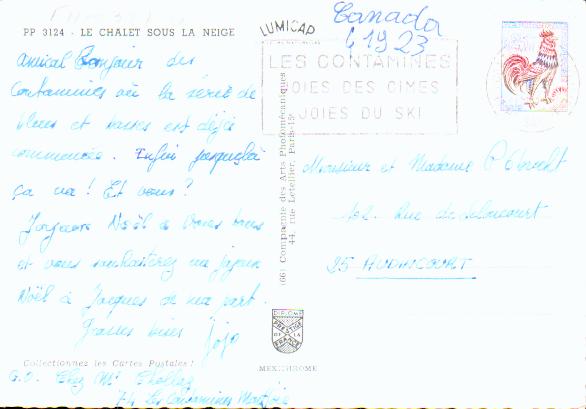 PP 3124 - LE CHALET SOUS LA NEIGE
LUMICAP
Canada
6 1923
LES CONTAMINES
JOIES DES CIMES
JOIES DU SKI
amical Bonjour des
Contamines où la série de
bleus et bosses est déjà
commencée. Enfin jusque là
ça va ! Et vous ?
Joyeux Noël à vous tous
et vous souhaiterez un joyeux
Noël à Jacques de ma part.
Grosses bises Jojo
Collectionnez les Cartes Postales !
G.O. Chez Mr
74 Les Contamines Montjoie
(66) Compagnie des Arts Photomécaniques
44, rue Letellier, Paris-15e
Monsieur et Madame
102 Rue de Seloncourt
25 AUDINCOURT
DIPLOME
PRESTIGE
DE LA
FRANCE
MEXICHROME